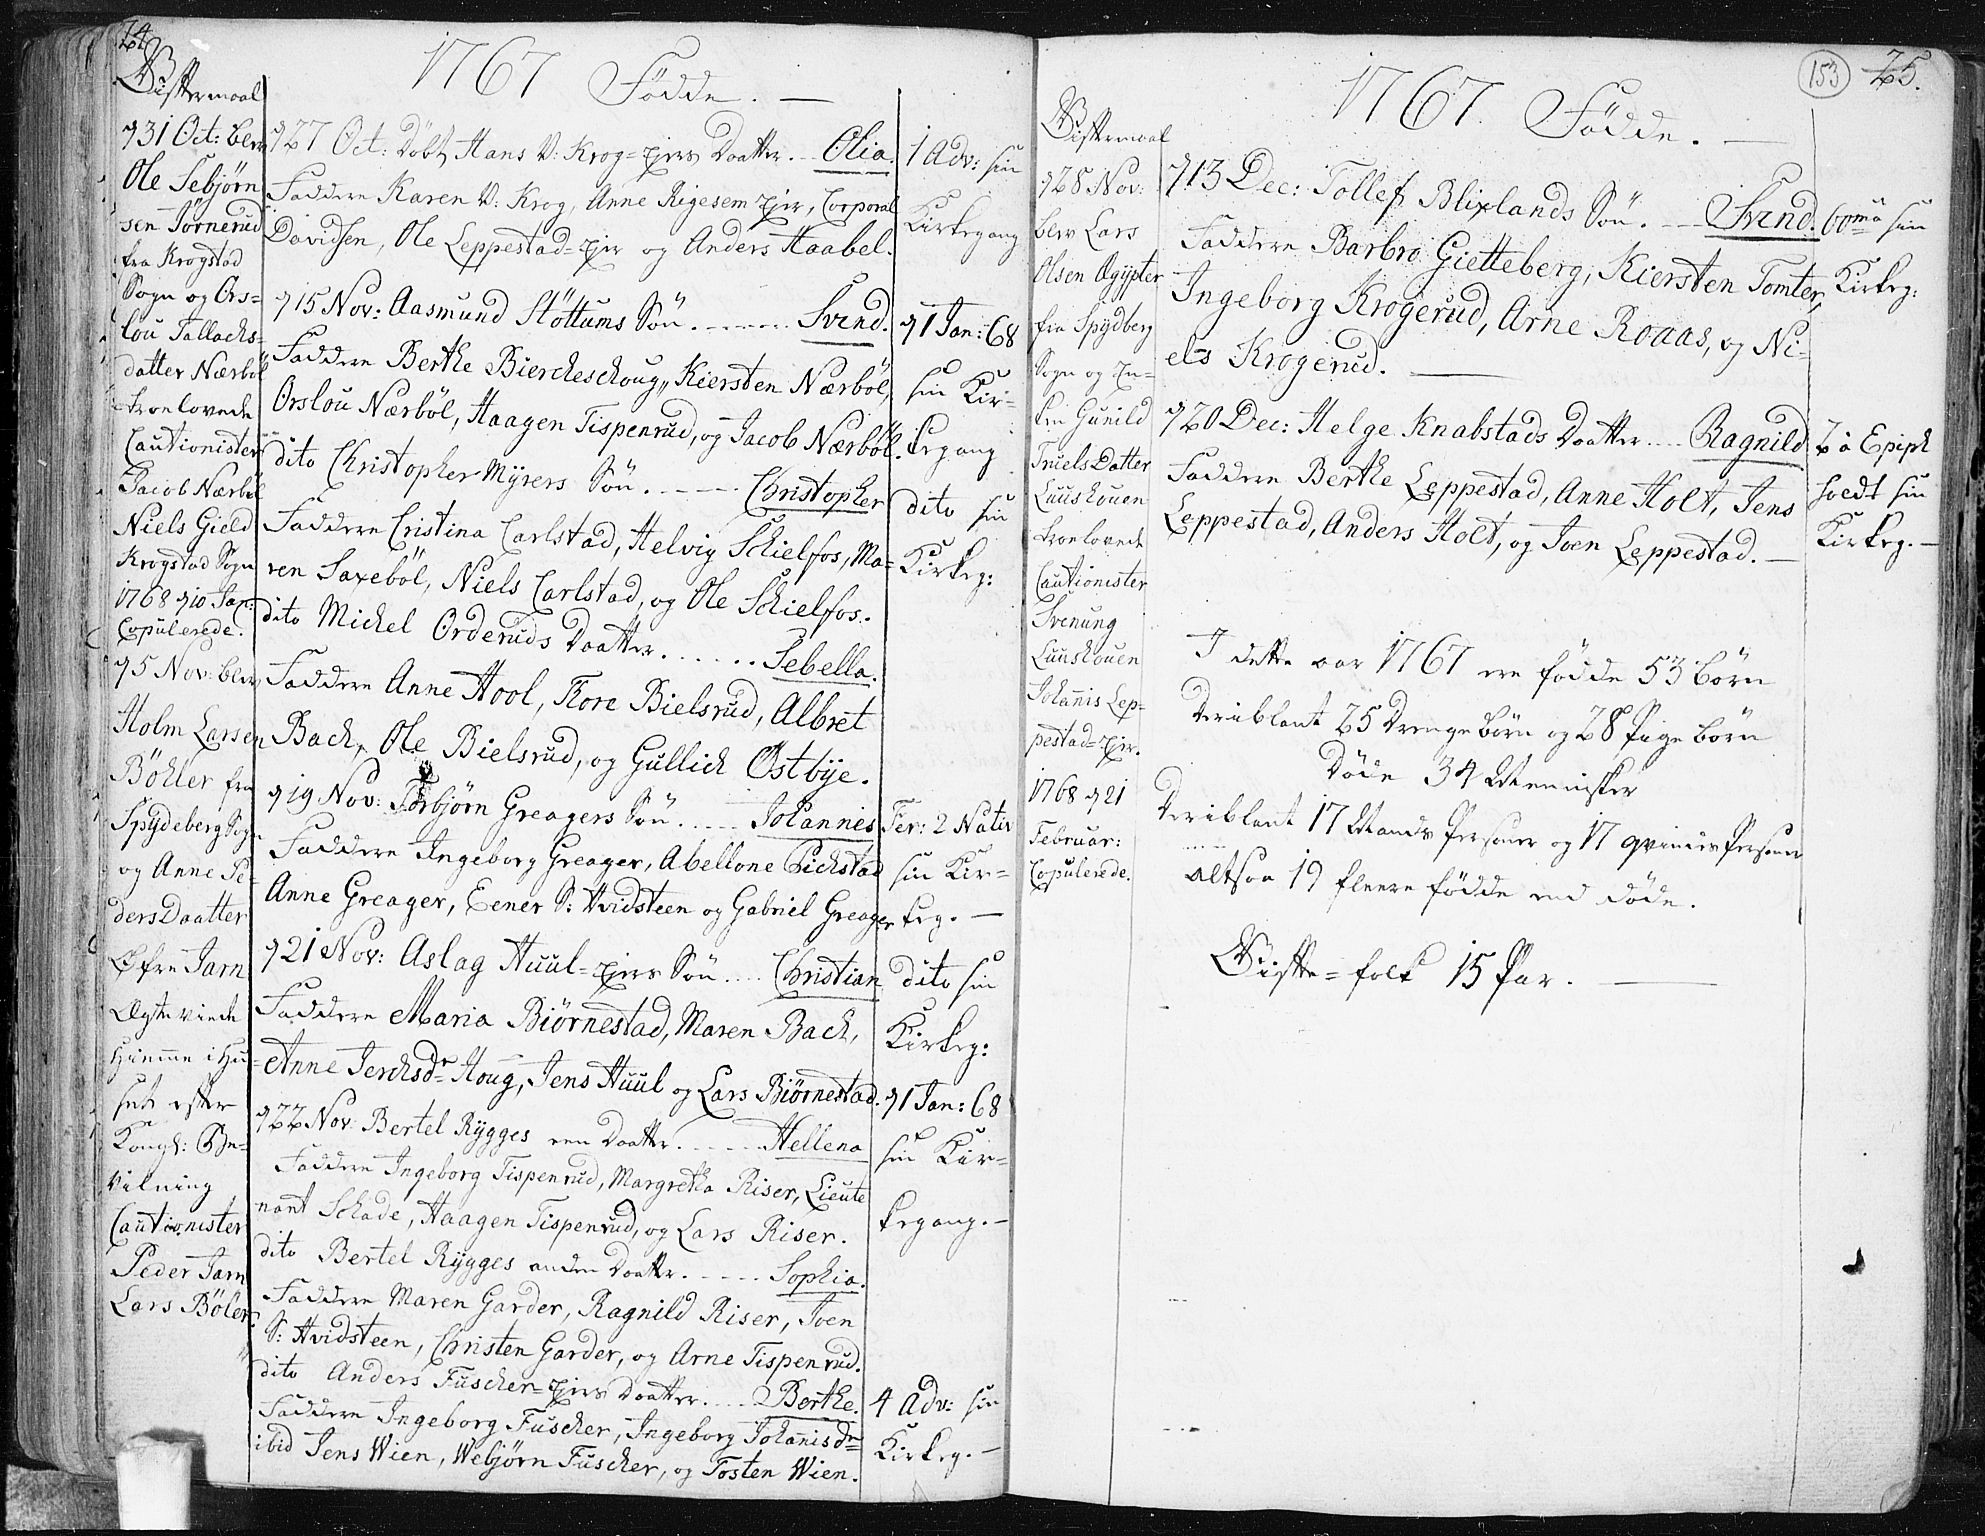 24
1767 Födde. —
Gistermaal
d 31 Oct: blev
Ole Sebjörn
sen Törnerud
fra Krogstad
Sogn og Ors=
lou Tallachs-
datter Nærböl
troelovede
Cautionister
Jacob Nærböl
Niels Gield
Krogstad Sogn
1768 d 10 Jan:
Copulerede.
d 5 Nov: blev
Holm Larsen
Böhler fra
Spydeberg Sogn
og Anne Pe-
dersDaatter
Øfre Jarn
Ægteviede
Hiemme i Hu-
set efter
Kongl: Be-
vilning
Cautionister
Peder Jarn
Lars Böler
d 27 Oct: Döbt Hans V: Krog=ejers Daatter. .. Olia.
Faddere Karen V: Krog, Anne Rigesem ejer, Corporal
Davidsen, Ole Leppestad=ejer og Anders Haabel.
d 15 Nov: Aasmund Stöttums Sön. ....... Svend.
Faddere Berthe Biercheschoug,, Kiersten Nærböl,
Orslou Nærböl, Haagen Tispenrud, og Jacob Nærböl.
dito Christopher Myrers Sön. ---- Christopher
Faddere Cristina Carlstad, Helvig Schielfos, Ma=
ren Saxeböl, Niels Carlstad, og Ole Schielfos.
dito Michel Orderuds Daatter. ...... Sebella.
Faddere Anne Hool, Tore Bielsrud, Albret
Bach, Ole Bielsrud, og Gullich Ostbye.
d 19 Nov: Torbjörn Greagers Sön. .... Johannes
Faddere Ingeborg Greager, Abellone Eichstad
Anne Greager, Eener S: Hvidsteen og Gabriel Greager
d 21 Nov: Aslag Huul=ejers Sön .... Christian
Faddere Maria Biörnestad, Maren Bach,
Anne Jerchsdr Houg, Jens Huul og Lars Biörnestad.
d 22 Nov: Bertel Rygges een Daatter. ..... Hellena
Faddere Ingeborg Tispenrud, Margretha Riser, Lieute
nant Schade, Haagen Tispenrud, og Lars Riser.
dito Bertel Rygges anden Daatter. ..... Sophia.
Faddere Maren Garder, Ragnild Riser, Joen
S: Hvidsteen, Christen Garder, og Arne Tispenrud.
dito Anders Fuscher=ejers Daatter. .... Berthe.
Faddere Ingeborg Fuscher, Ingeborg Johanisdr
ibid Jens Wien, Webjörn Fuscher, og Tosten Wien.
1 Adv: sin
Kirkegang
d 1 Jan: 68
sin Kir=
kegang
dito sin
Kirkeg:
Fer: 2 Nativ
sin Kir=
keg. —
dito sin
Kirkeg:
d 1 Jan: 68
sin Kir=
kegang. —
4 Adv: sin
Kirkeg. —
153
25.
1767. Födde. —
Gistermaal
d 28 Nov:
blev Lars
Olsen Ægypter
fra Spydberg
Sogn og En=
ken Gunild
TruelsDatter
Luuskouen
troelovede
Cautionister
Svenung
Luuskouen
Johanis Lep=
pestad=ejer.
1768 d 21
Februar:
Copulerede.
d 13 Dec: Tollef Blixlands Sön. --- Svend.
Faddere Barbro Gietteberg, Kiersten Tomter,
Ingeborg Krogerud, Arne Roaas, og Ni-
els Krogerud. —
d 20 Dec: Helge Knabstads Daatter .... Ragnild
Faddere Berthe Leppestad, Anne Holt, Jens
Leppestad, Anders Holt, og Joen Leppestad. —
6oma sin
Kirkeg:
2 a Epiph
holdt sin
Kirkeg. —
I dette aar 1767 ere födde 53 börn
Deriblant 25 Drengebörn og 28 Pigebörn
Döde 34 Mennisker
Deriblant 17 Mands Personer og 17 qvindes Personer
altsaa 19 fleere födde end döde.
Gifte=folk 15 Par. —